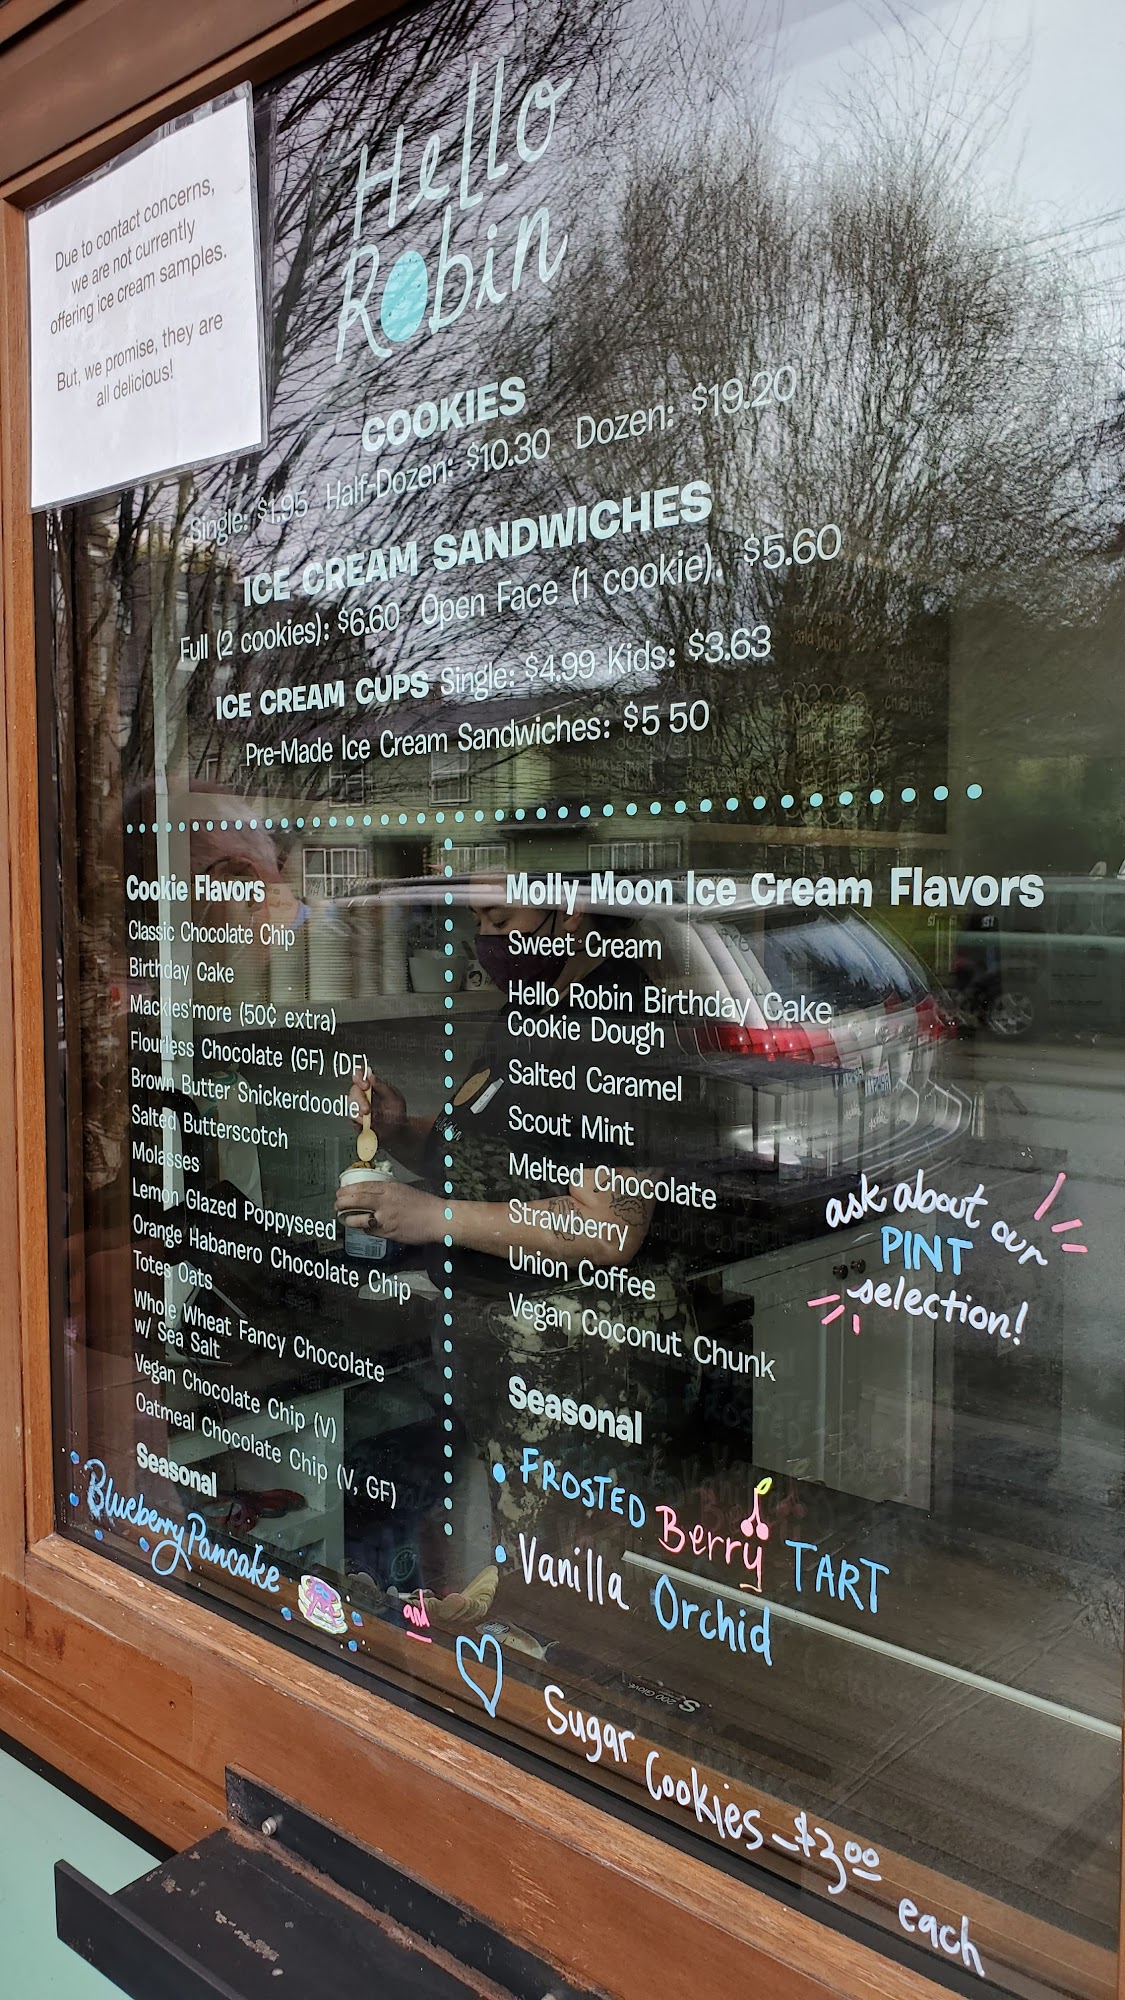 Due to contact concerns,
we are not currently
offering ice cream samples.
But, we promise, they are
all delicious!
Hello
Robin
COOKIES
Single: $1.95 Half-Dozen: $10.30 Dozen: $19.20
ICE CREAM SANDWICHES
Full (2 cookies): $6.60 Open Face (1 cookie). $5.60
ICE CREAM CUPS Single: $4.99 Kids: $3.63
Pre-Made Ice Cream Sandwiches: $5 50
Cookie Flavors
Classic Chocolate Chip
Birthday Cake
Mackles'more (50¢ extra)
Flourless Chocolate (GF) (DF)
Brown Butter Snickerdoodle
Salted Butterscotch
Molasses
Lemon Glazed Poppyseed
Orange Habanero Chocolate Chip
Totes Oats
Whole Wheat Fancy Chocolate
w/ Sea Salt
Vegan Chocolate Chip (V)
Oatmeal Chocolate Chip (V, GF)
Seasonal
Blueberry Pancake
and
Sugar Cookies - $3.00 each
Molly Moon Ice Cream Flavors
Sweet Cream
Hello Robin Birthday Cake
Cookie Dough
Salted Caramel
Scout Mint
Melted Chocolate
Strawberry
Union Coffee
Vegan Coconut Chunk
Seasonal
• FROSTED Berry TART
• Vanilla Orchid
ask about our
PINT
selection!